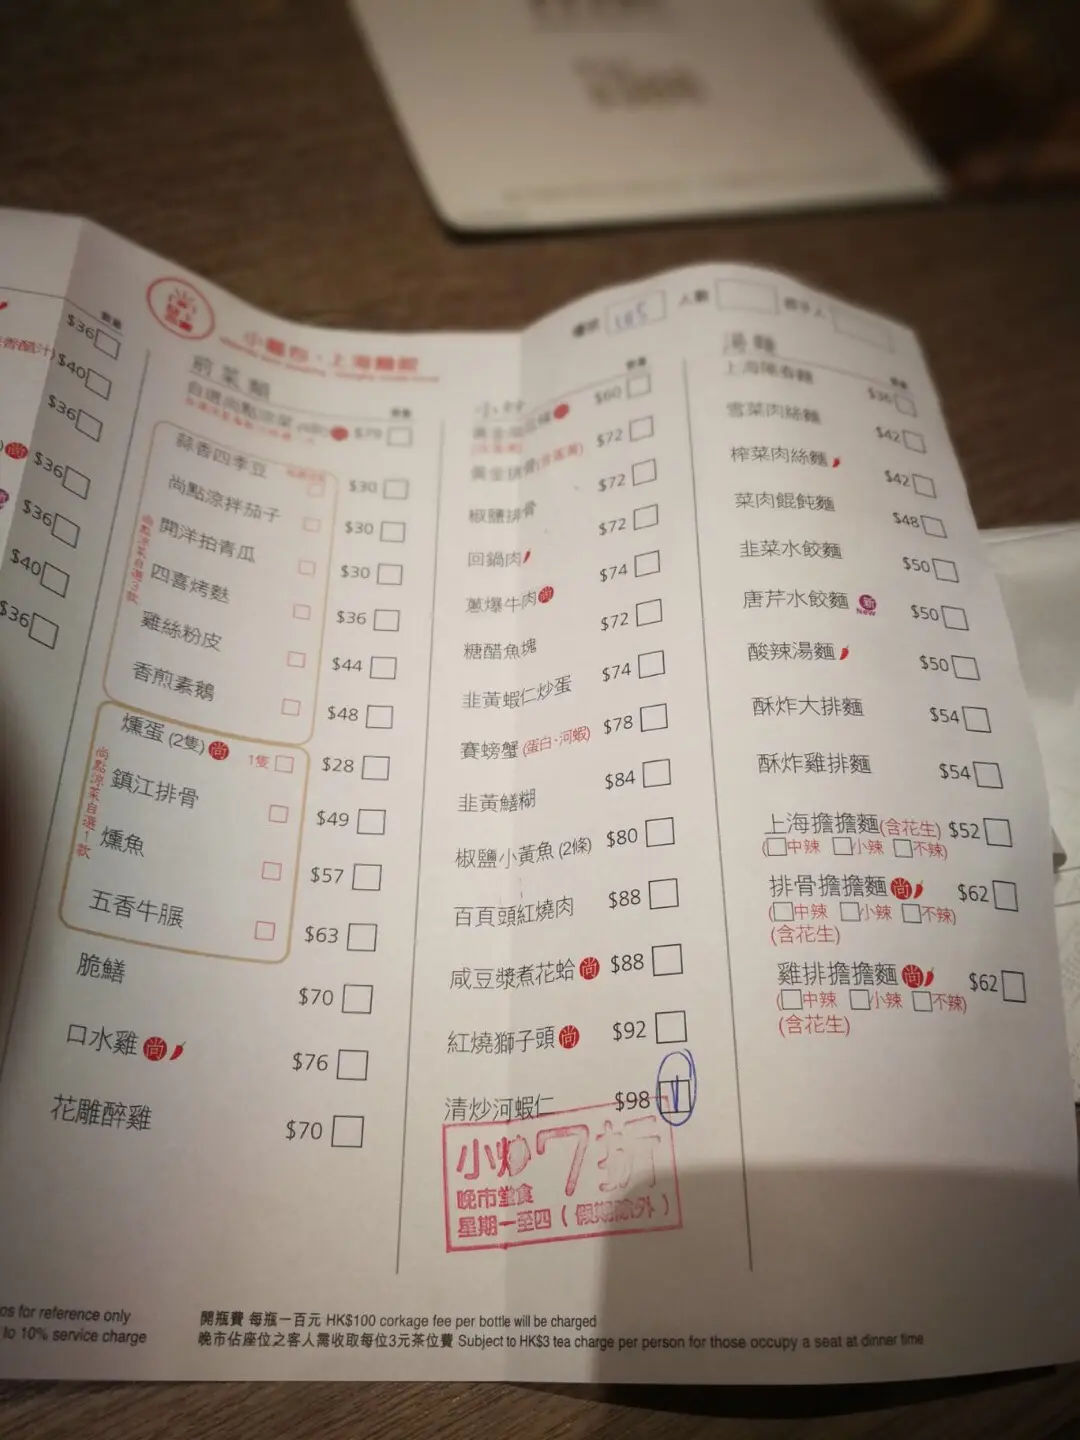 $36
$40
$36
$36
$36
$40
$36
香醋汁)
小籠包·上海麵飯
前菜類
自選尚點涼菜
$79
蒜香四季豆
$30
尚點涼拌茄子
$30
開洋拍青瓜
$30
四喜烤麩
$36
雞絲粉皮
$44
香煎素鵝
$48
尚點涼菜自選3款
燻蛋 (2隻) 尚 1隻
$28
鎮江排骨
$49
燻魚
$57
五香牛𦟌
$63
尚點涼菜自選1款
脆鱔
$70
口水雞 尚
$76
花雕醉雞
$70
小炒
$60
$72
椒鹽排骨
$72
回鍋肉
$72
蔥爆牛肉 尚
$74
糖醋魚塊
$72
韭黃蝦仁炒蛋
$74
賽螃蟹 (蛋白·河蝦)
$78
韭黃鱔糊
$84
椒鹽小黃魚 (2條)
$80
百頁頭紅燒肉
$88
咸豆漿煮花蛤 尚
$88
紅燒獅子頭 尚
$92
清炒河蝦仁
$98
小炒7折
晚市堂食
星期一至四(假期除外)
人數
湯麵
上海陽春麵
$36
雪菜肉絲麵
$42
榨菜肉絲麵
$42
菜肉餛飩麵
$48
韭菜水餃麵
$50
唐芹水餃麵 新 New
$50
酸辣湯麵
$50
酥炸大排麵
$54
酥炸雞排麵
$54
上海擔擔麵(含花生) $52
(中辣 小辣 不辣)
排骨擔擔麵 尚 $62
(中辣 小辣 不辣)
(含花生)
雞排擔擔麵 尚 $62
(中辣 小辣 不辣)
(含花生)
os for reference only
to 10% service charge
開瓶費 每瓶一百元 HK$100 corkage fee per bottle will be charged
晚市佔座位之客人需收取每位3元茶位費 Subject to HK$3 tea charge per person for those occupy a seat at dinner time